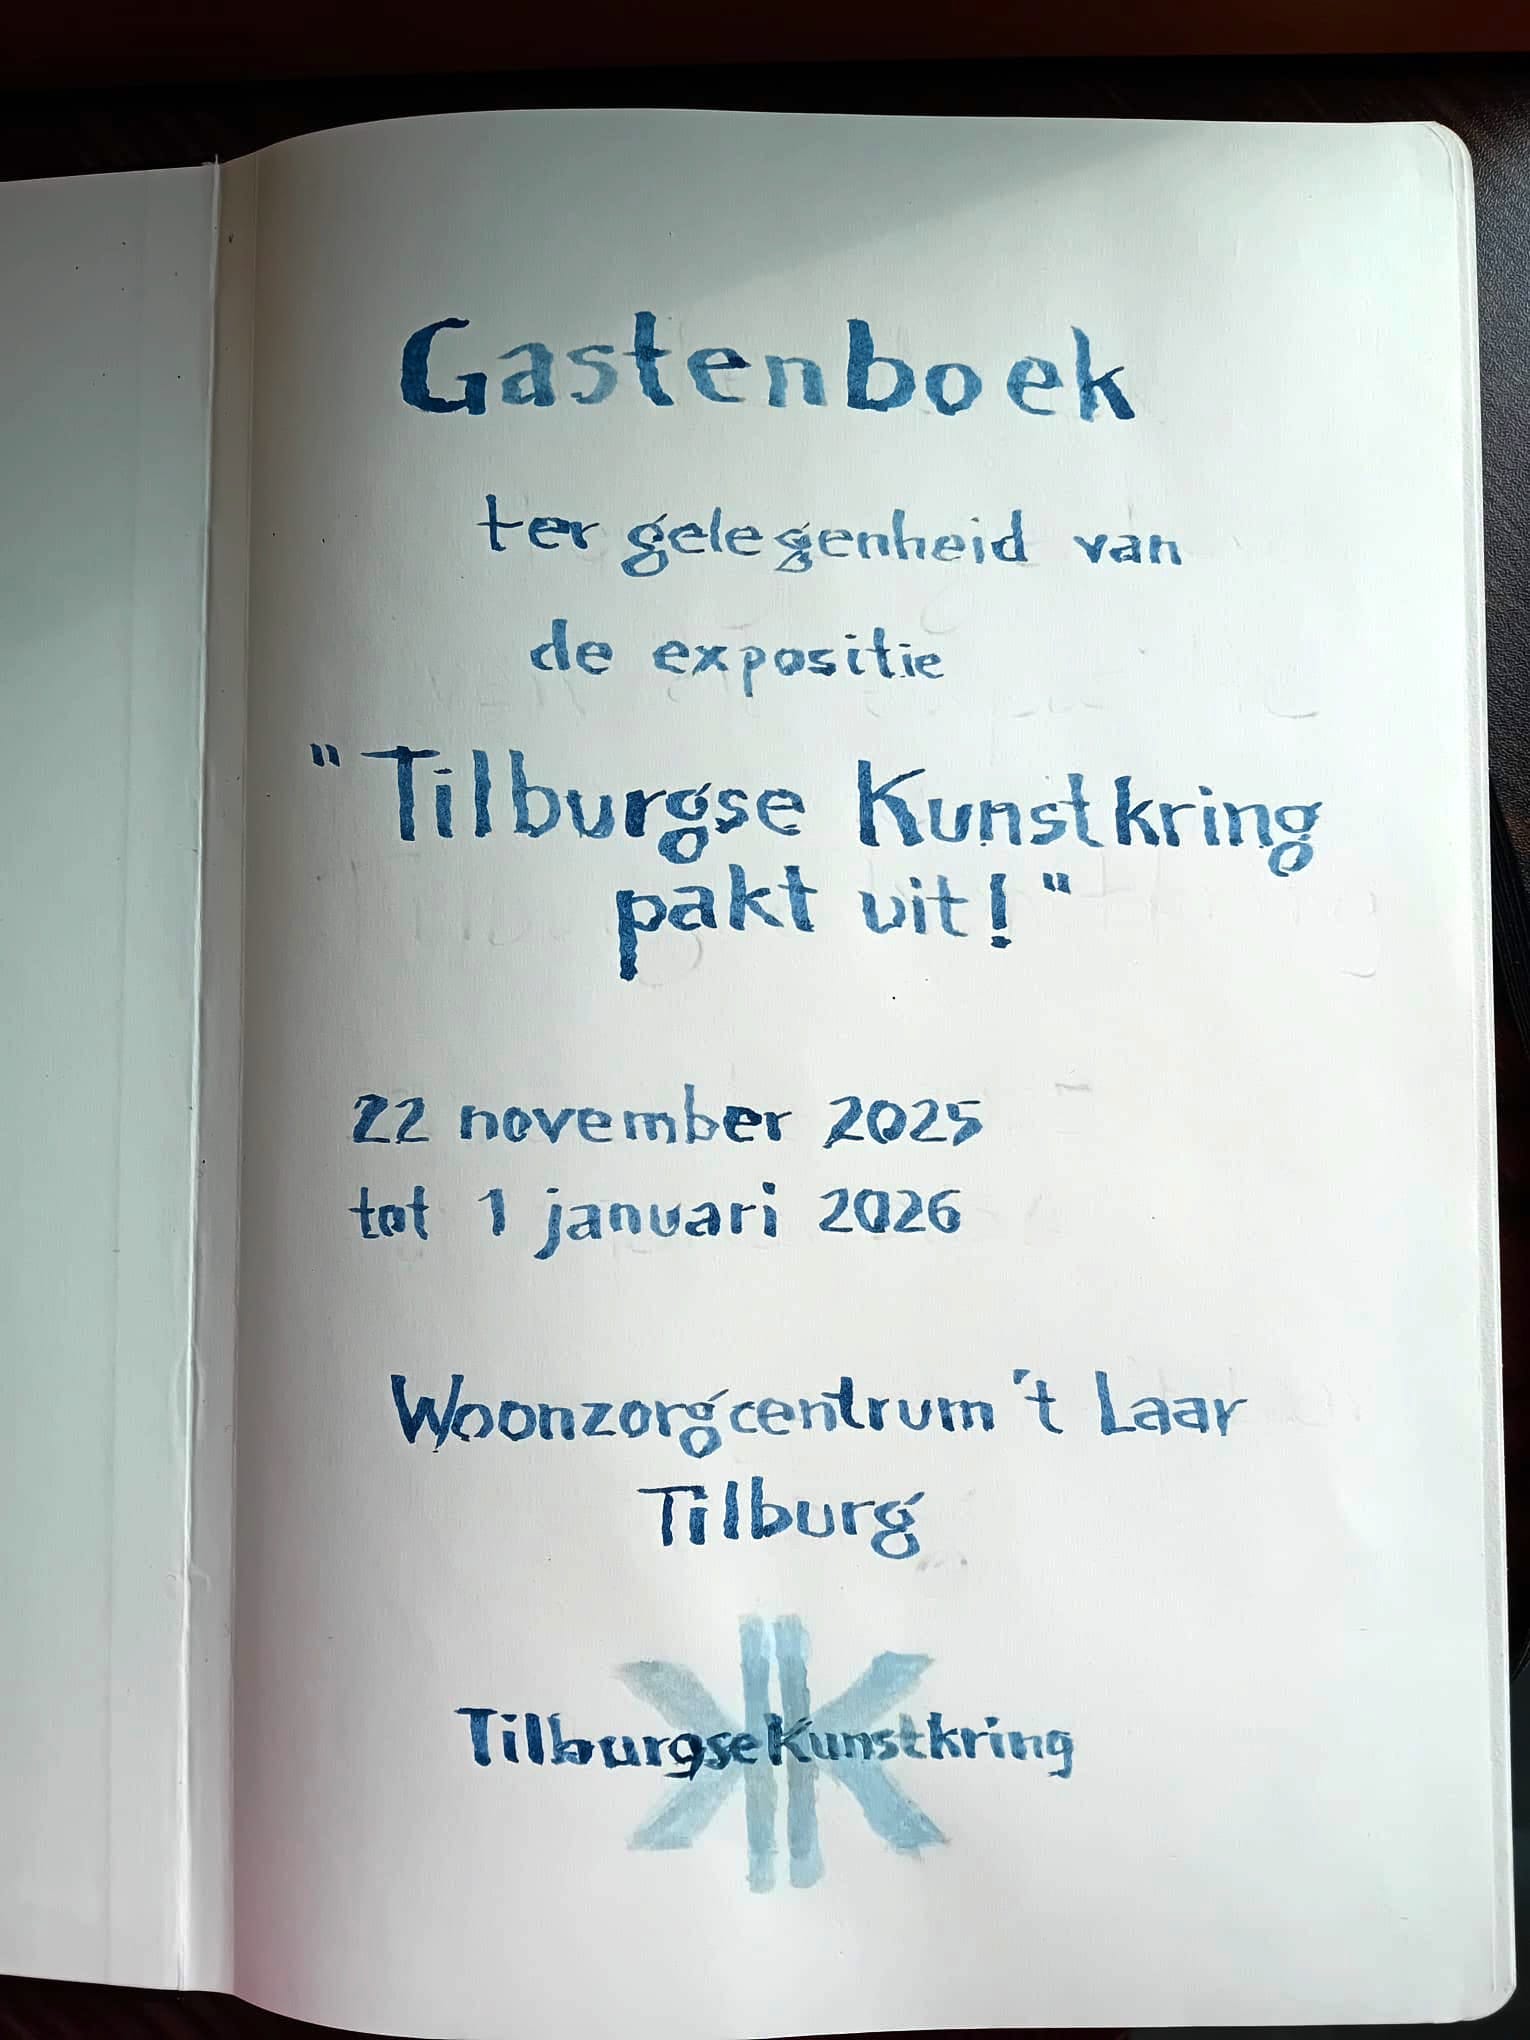 Gastenboek
ter gelegenheid van
de expositie
"Tilburgse Kunstkring
pakt uit!"
22 november 2025
tot 1 januari 2026
Woonzorgcentrum 't Laar
Tilburg
TilburgseKunstkring